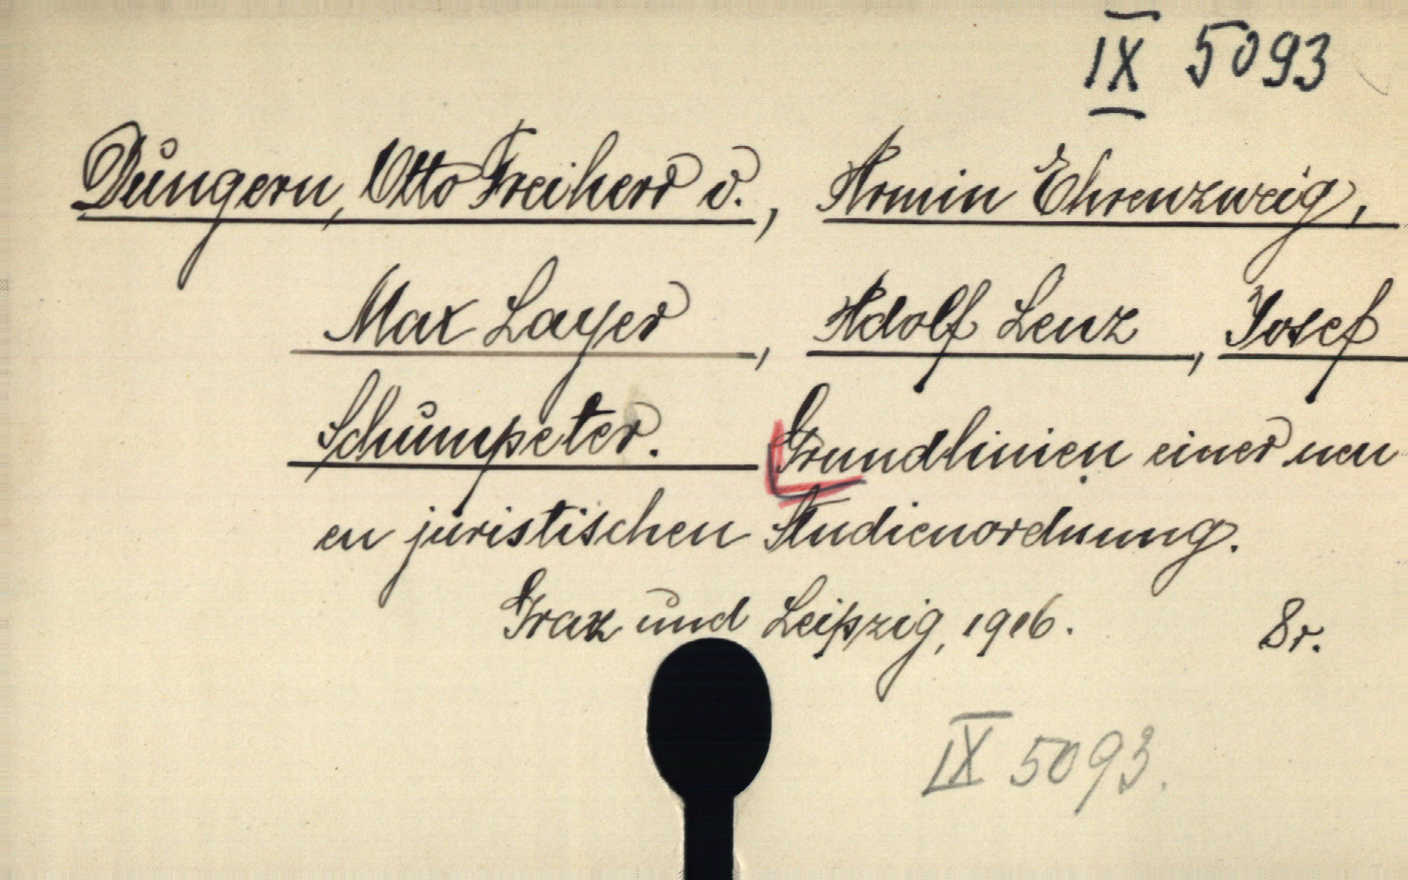 IX 5093
Dungern, Otto Freiherr v., Armin Ehrenzweig,
Max Layer, Adolf Lenz, Josef
Schumpeter. Grundlinien einer neu
en juristischen Studienordnung.
Graz und Leipzig, 1916. 8r.
IX 5093.